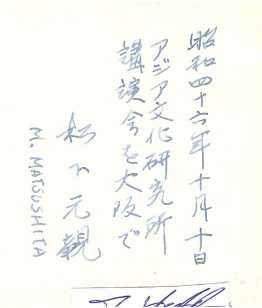 昭和四十六年十月十日
アジア文化研究所
講演会を大阪で
松下元親
M. MATSUSHITA